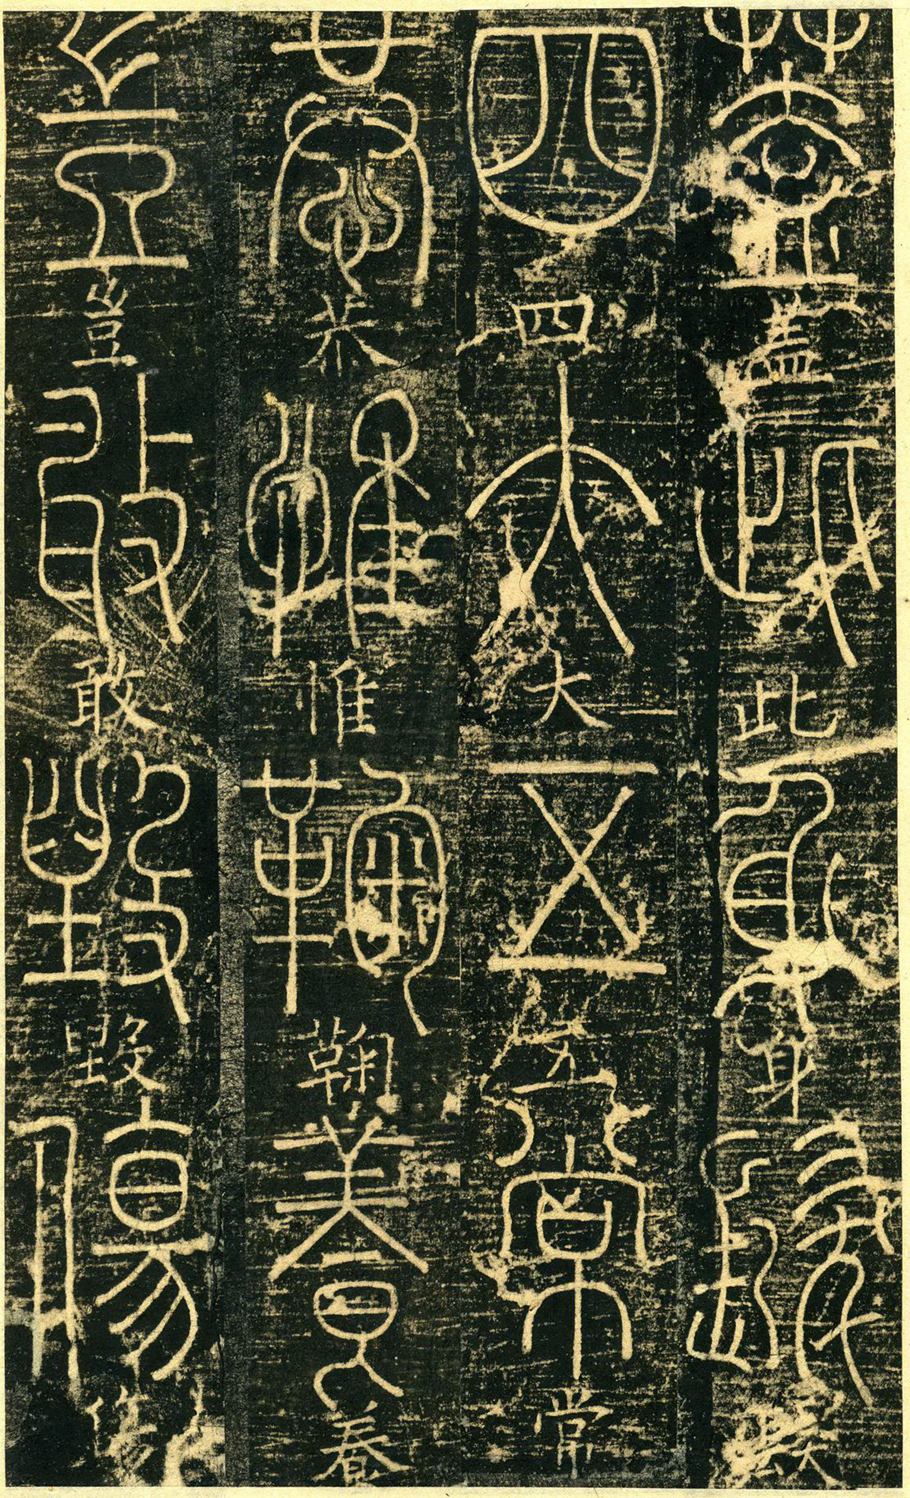 蓋此身髮
四大五常
恭惟鞠養
豈敢毀傷